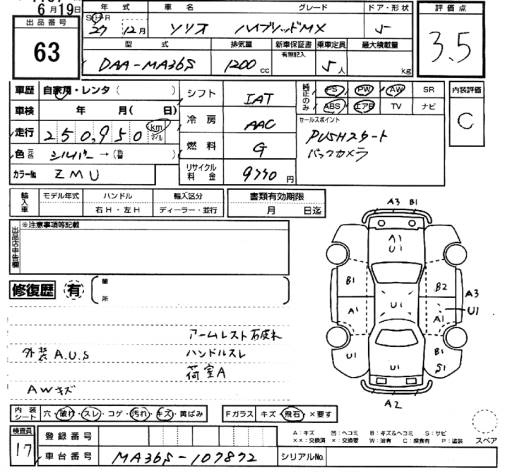 6月19日
出品番号
63
年式 車名 グレード ドア・形状
27 12月 ソリオ ハイブリッドMX 5
型式 排気量 新車保証書 有無記入 乗車定員 最大積載量
DAA-MA36S 1200cc 5人 kg
評価点
3.5
車歴 自家用・レンタ( )
車検 年 月( 日)
走行 250,950 km
色 シルバー →( )
カラーNo ZMU
シフト IAT
冷房 AAC
燃料 G
リサイクル料金 9770円
純正のみ PS PW AW SR
ABS エアB TV ナビ
セールスポイント
PUSHスタート
バックカメラ
内装評価
C
輸入車 モデル年式 ハンドル 輸入区分
右H・左H ディーラー・並行
書類有効期限
月 日迄
出品店申告欄 ※注意事項等記載
修復歴 有 箇所
外装A.U.S
AWキズ
ハンドルスレ
荷室A
A3 B1
A1
U1
B1 B2
A3
U1
A1 U1 A1
U1 U1 B1
S1
A2
内装シート 穴・破れ・スレ・コゲ・汚れ・キズ・黄ばみ
Fガラス キズ・飛石・×要す
検査員 17
登録番号
車台番号 MA36S-107872 シリアルNo.
A:キズ U:ヘコミ B:キズ&ヘコミ S:サビ
××:交換済 ×:交換要 W:波有 C:腐食有 P:塗装
スペア